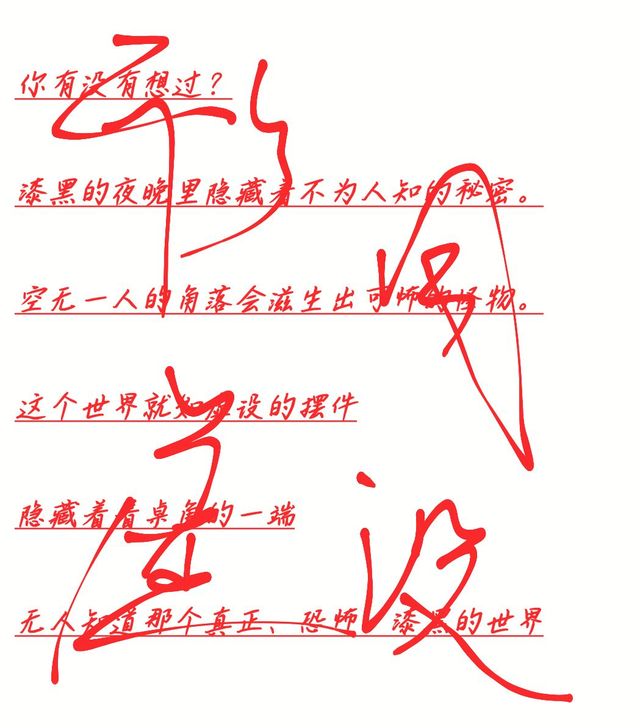 你有没有想过？
漆黑的夜晚里隐藏着不为人知的秘密。
空无一人的角落会滋生出可怖的怪物。
这个世界就如虚设的摆件
隐藏着着桌角的一端
无人知道那个真正、恐怖、漆黑的世界
形同
虚设